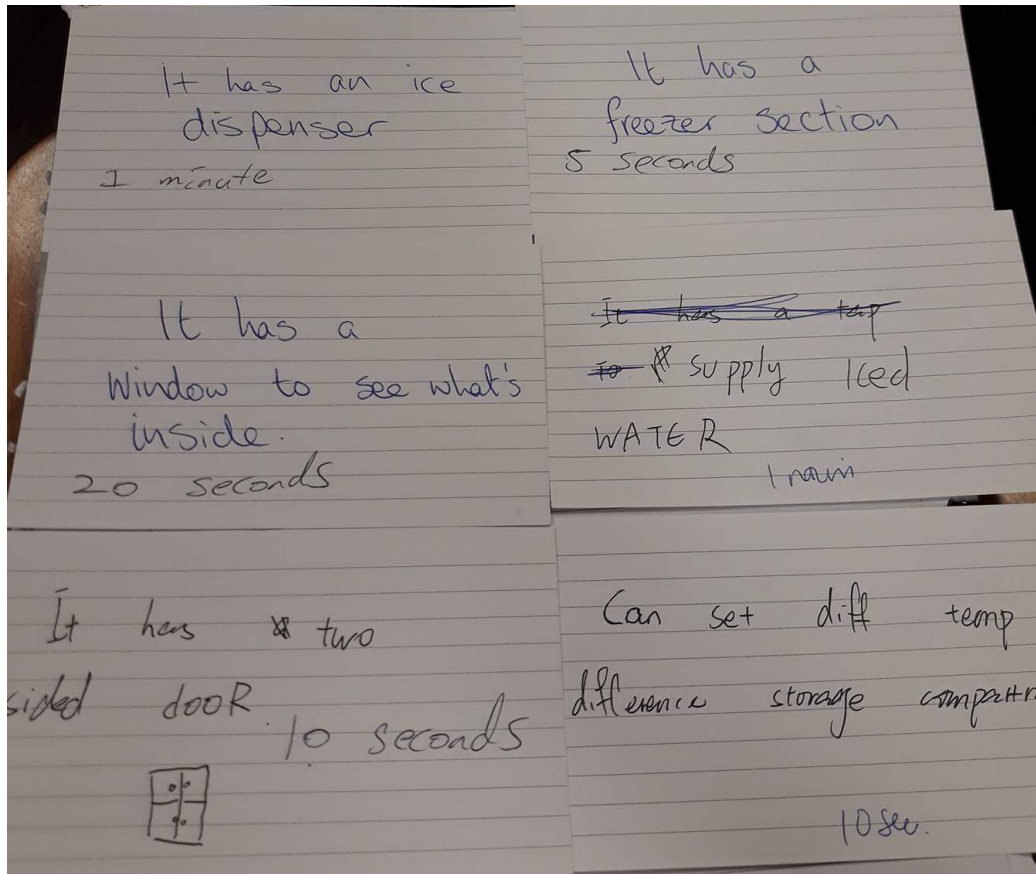 It has an ice
dispenser
1 minute
It has a
freezer section
5 seconds
It has a
window to see what's
inside.
20 seconds
It has a tap
To supply Iced
WATER
1 min
It has two
sided dooR
10 seconds
Can set diff temp
difference storage
10 sec.